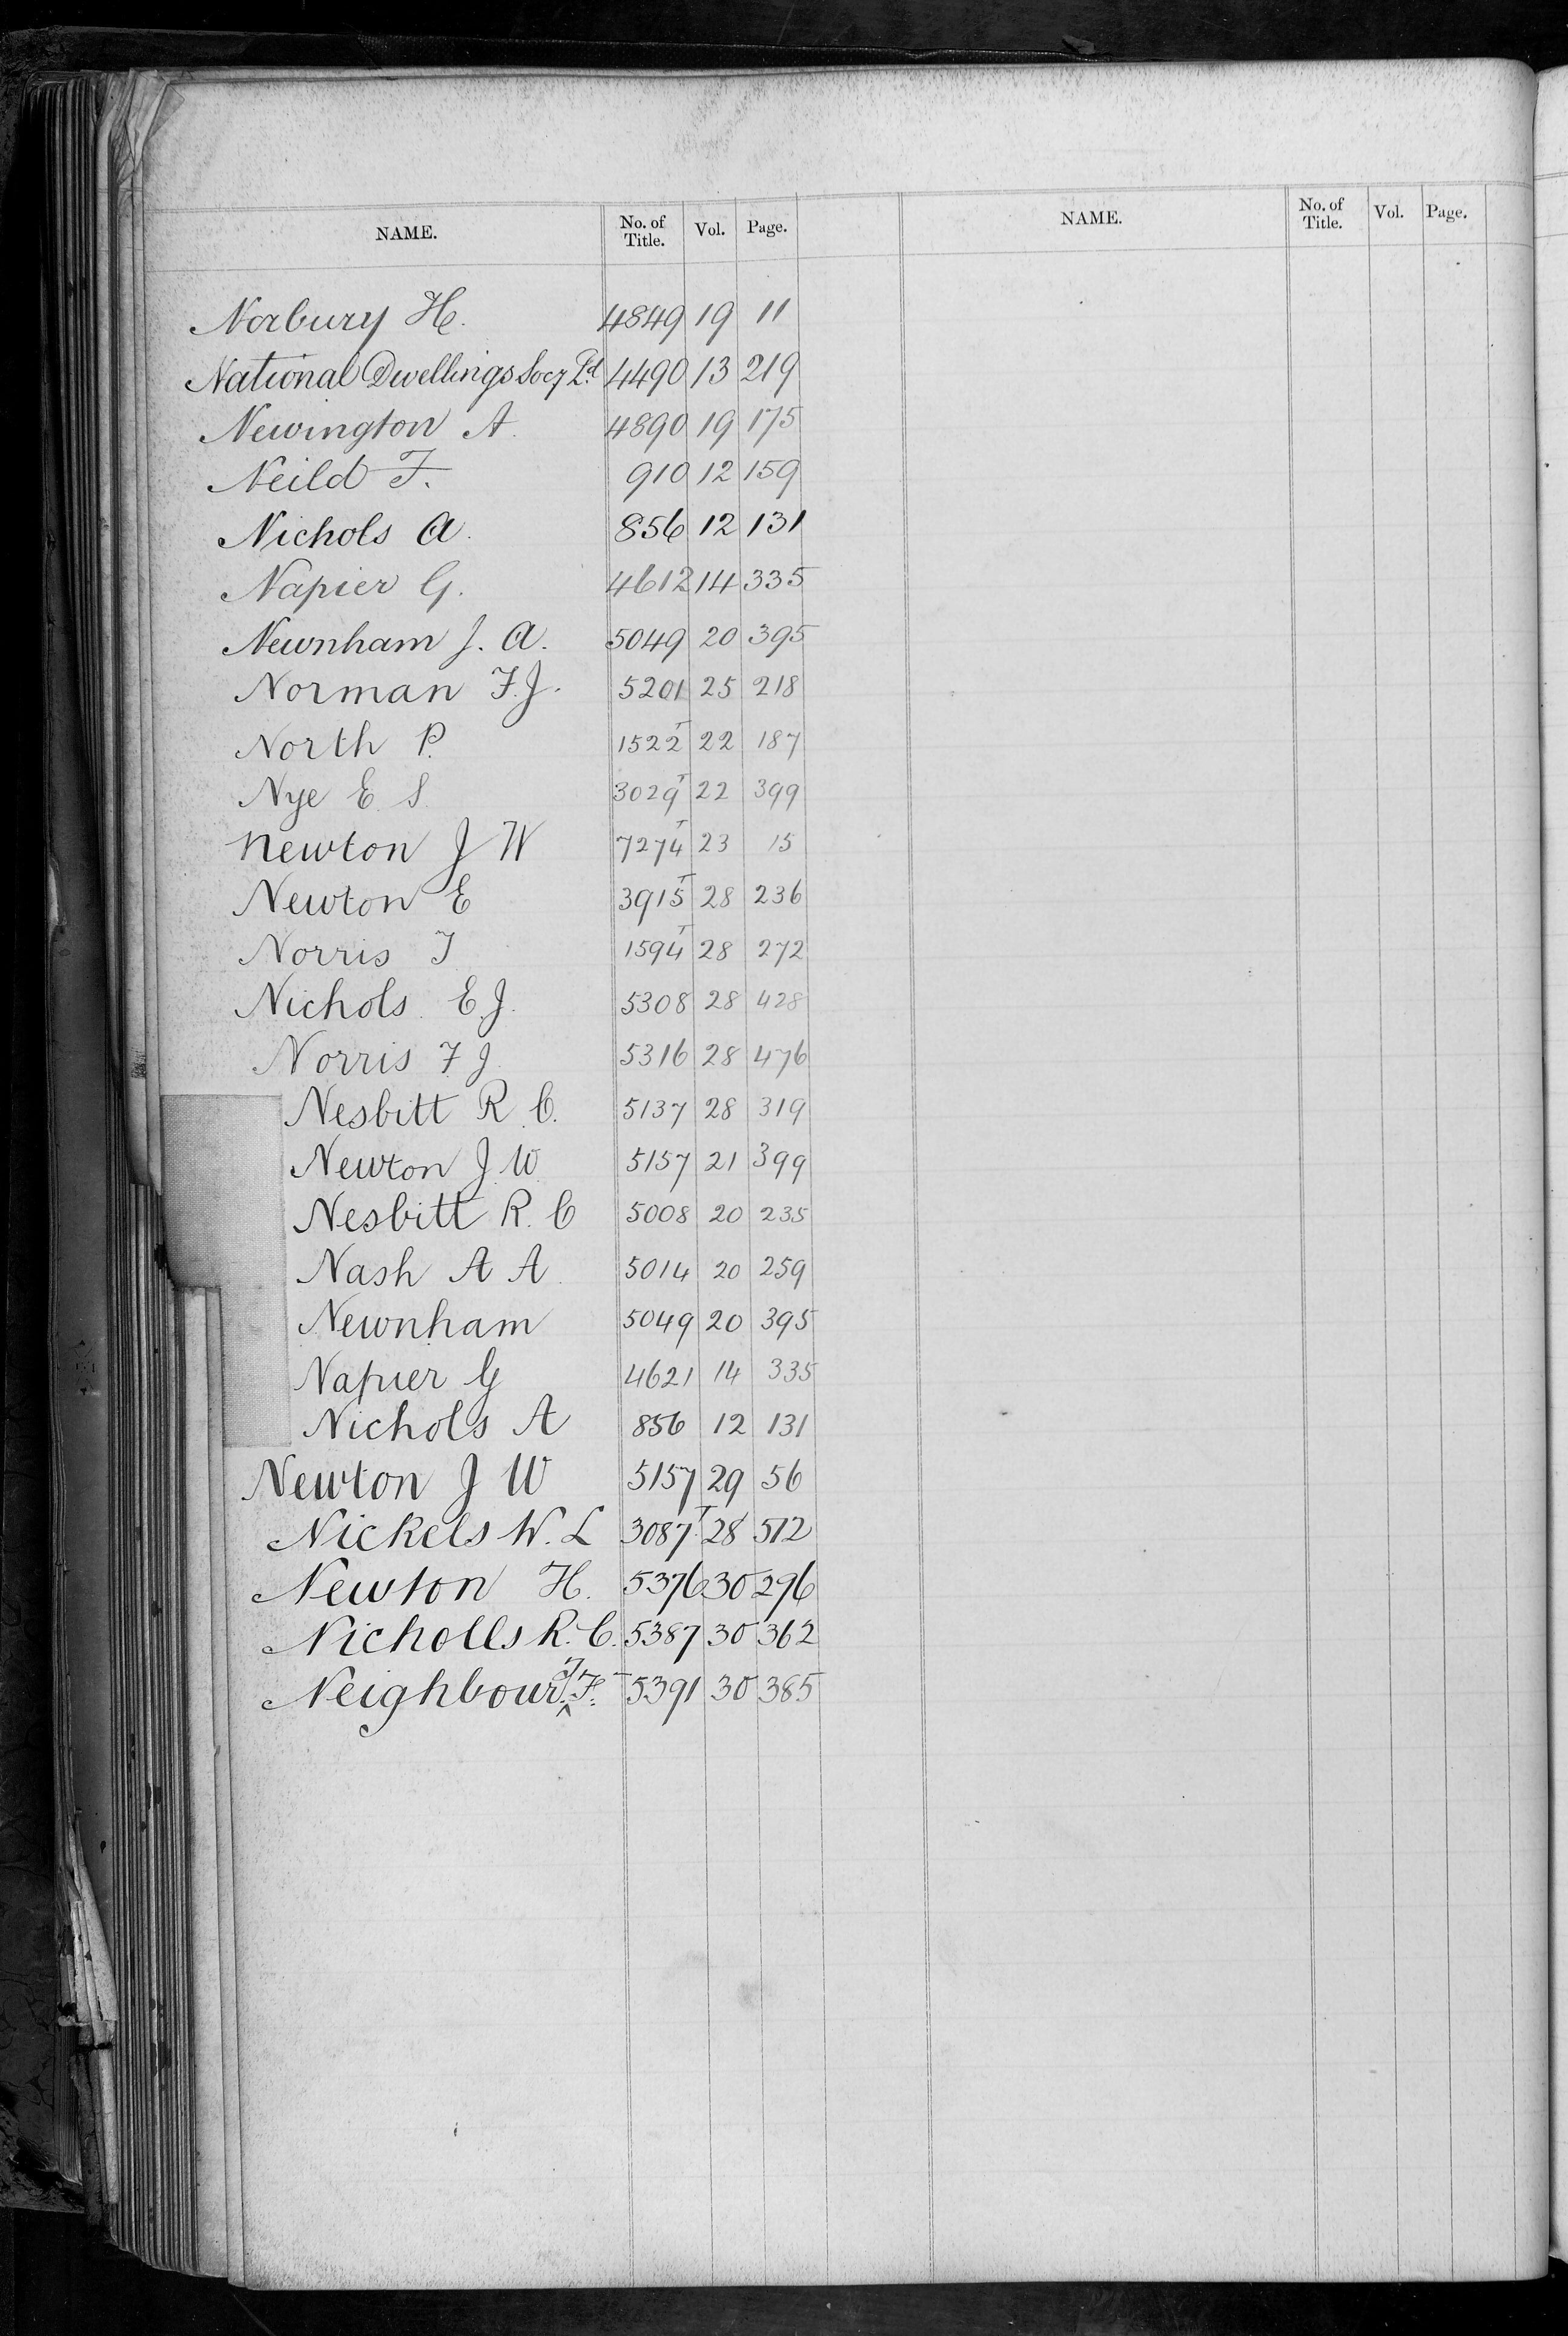 NAME. No. of Title. Vol. Page. NAME. No. of Title. Vol. Page.
Norbury H. 4849 19 11
National Dwellings Socy Ld 4490 13 219
Newington A. 4890 19 175
Neild F. 910 12 159
Nichols A. 856 12 131
Napier G. 4612 14 335
Newnham J. A. 5049 20 395
Norman F. J. 5201 25 218
North P. 1522 T 22 187
Nye E. S. 3029 T 22 399
Newton J W 7274 T 23 15
Newton E 3915 T 28 236
Norris T 1594 T 28 272
Nichols. E. J. 5308 28 428
Norris F J 5316 28 476
Nesbitt R. C. 5137 28 319
Newton J. W. 5157 21 399
Nesbitt R. C 5008 20 235
Nash A A. 5014 20 259
Newnham 5049 20 395
Napier G 4621 14 335
Nichols A 856 12 131
Newton J W 5157 29 56
Nickels W. L 3087 T 28 512
Newton H. 5376 30 296
Nicholls R. C. 5387 30 362
Neighbour J. F. 5391 30 385